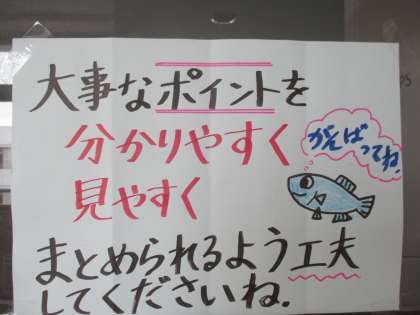 大事なポイントを
分かりやすく
見やすく
がんば
ってね。
まとめられるよう工夫
してくださいね.